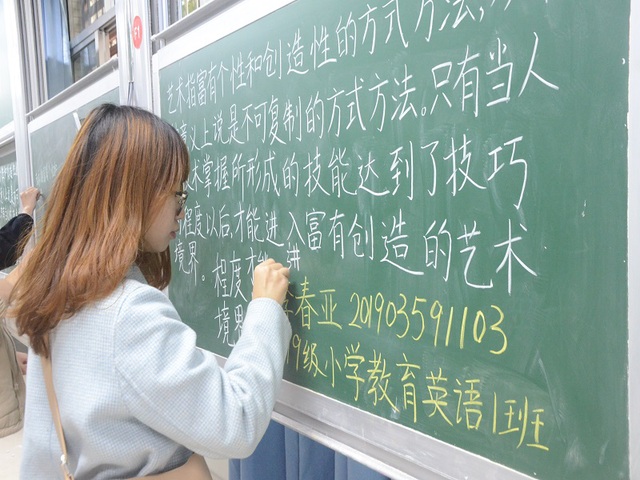 艺术指富有个性和创造性的方式方法,
意义上说是不可复制的方式方法。只有当人
技术掌握所形成的技能达到了技巧
程度以后,才能进入富有创造的艺术
境界。程度才能进
境界
春亚 201903591103
19级小学教育英语1班